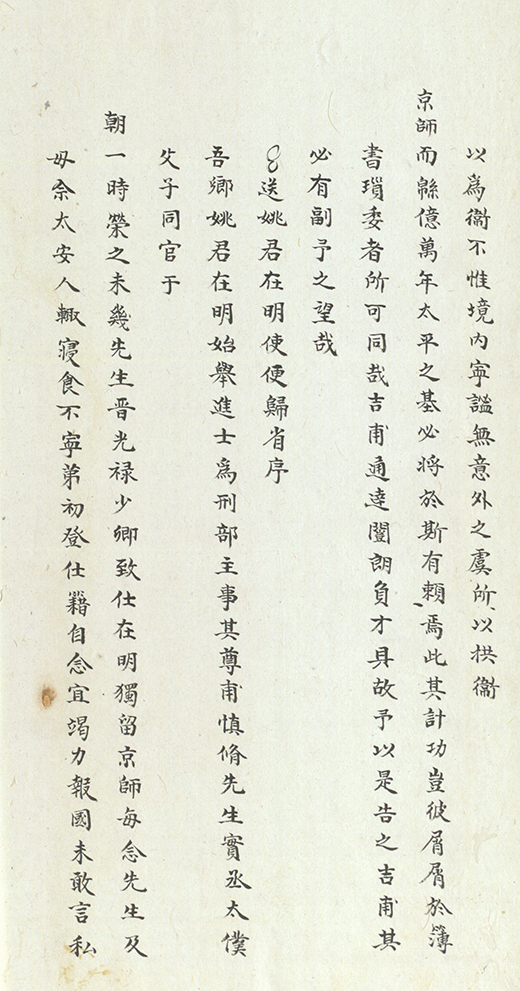 以為衞不惟境内寧謐無意外之虞所以拱衞
京師而緜億萬年太平之基必將於斯有賴焉此其計功豈彼屑屑於簿
書瑣委者所可同哉吉甫通逹闓朗負才具故予以是告之吉甫其
必有副予之望哉
送姚君在明使便歸省序
吾鄉姚君在明始舉進士爲刑部主事其尊甫慎脩先生實丞太僕
父子同官于
朝一時榮之未幾先生晋光禄少卿致仕在明獨留京師每念先生及
母佘太安人輙寢食不寧第初登仕籍自念宜竭力報國未敢言私